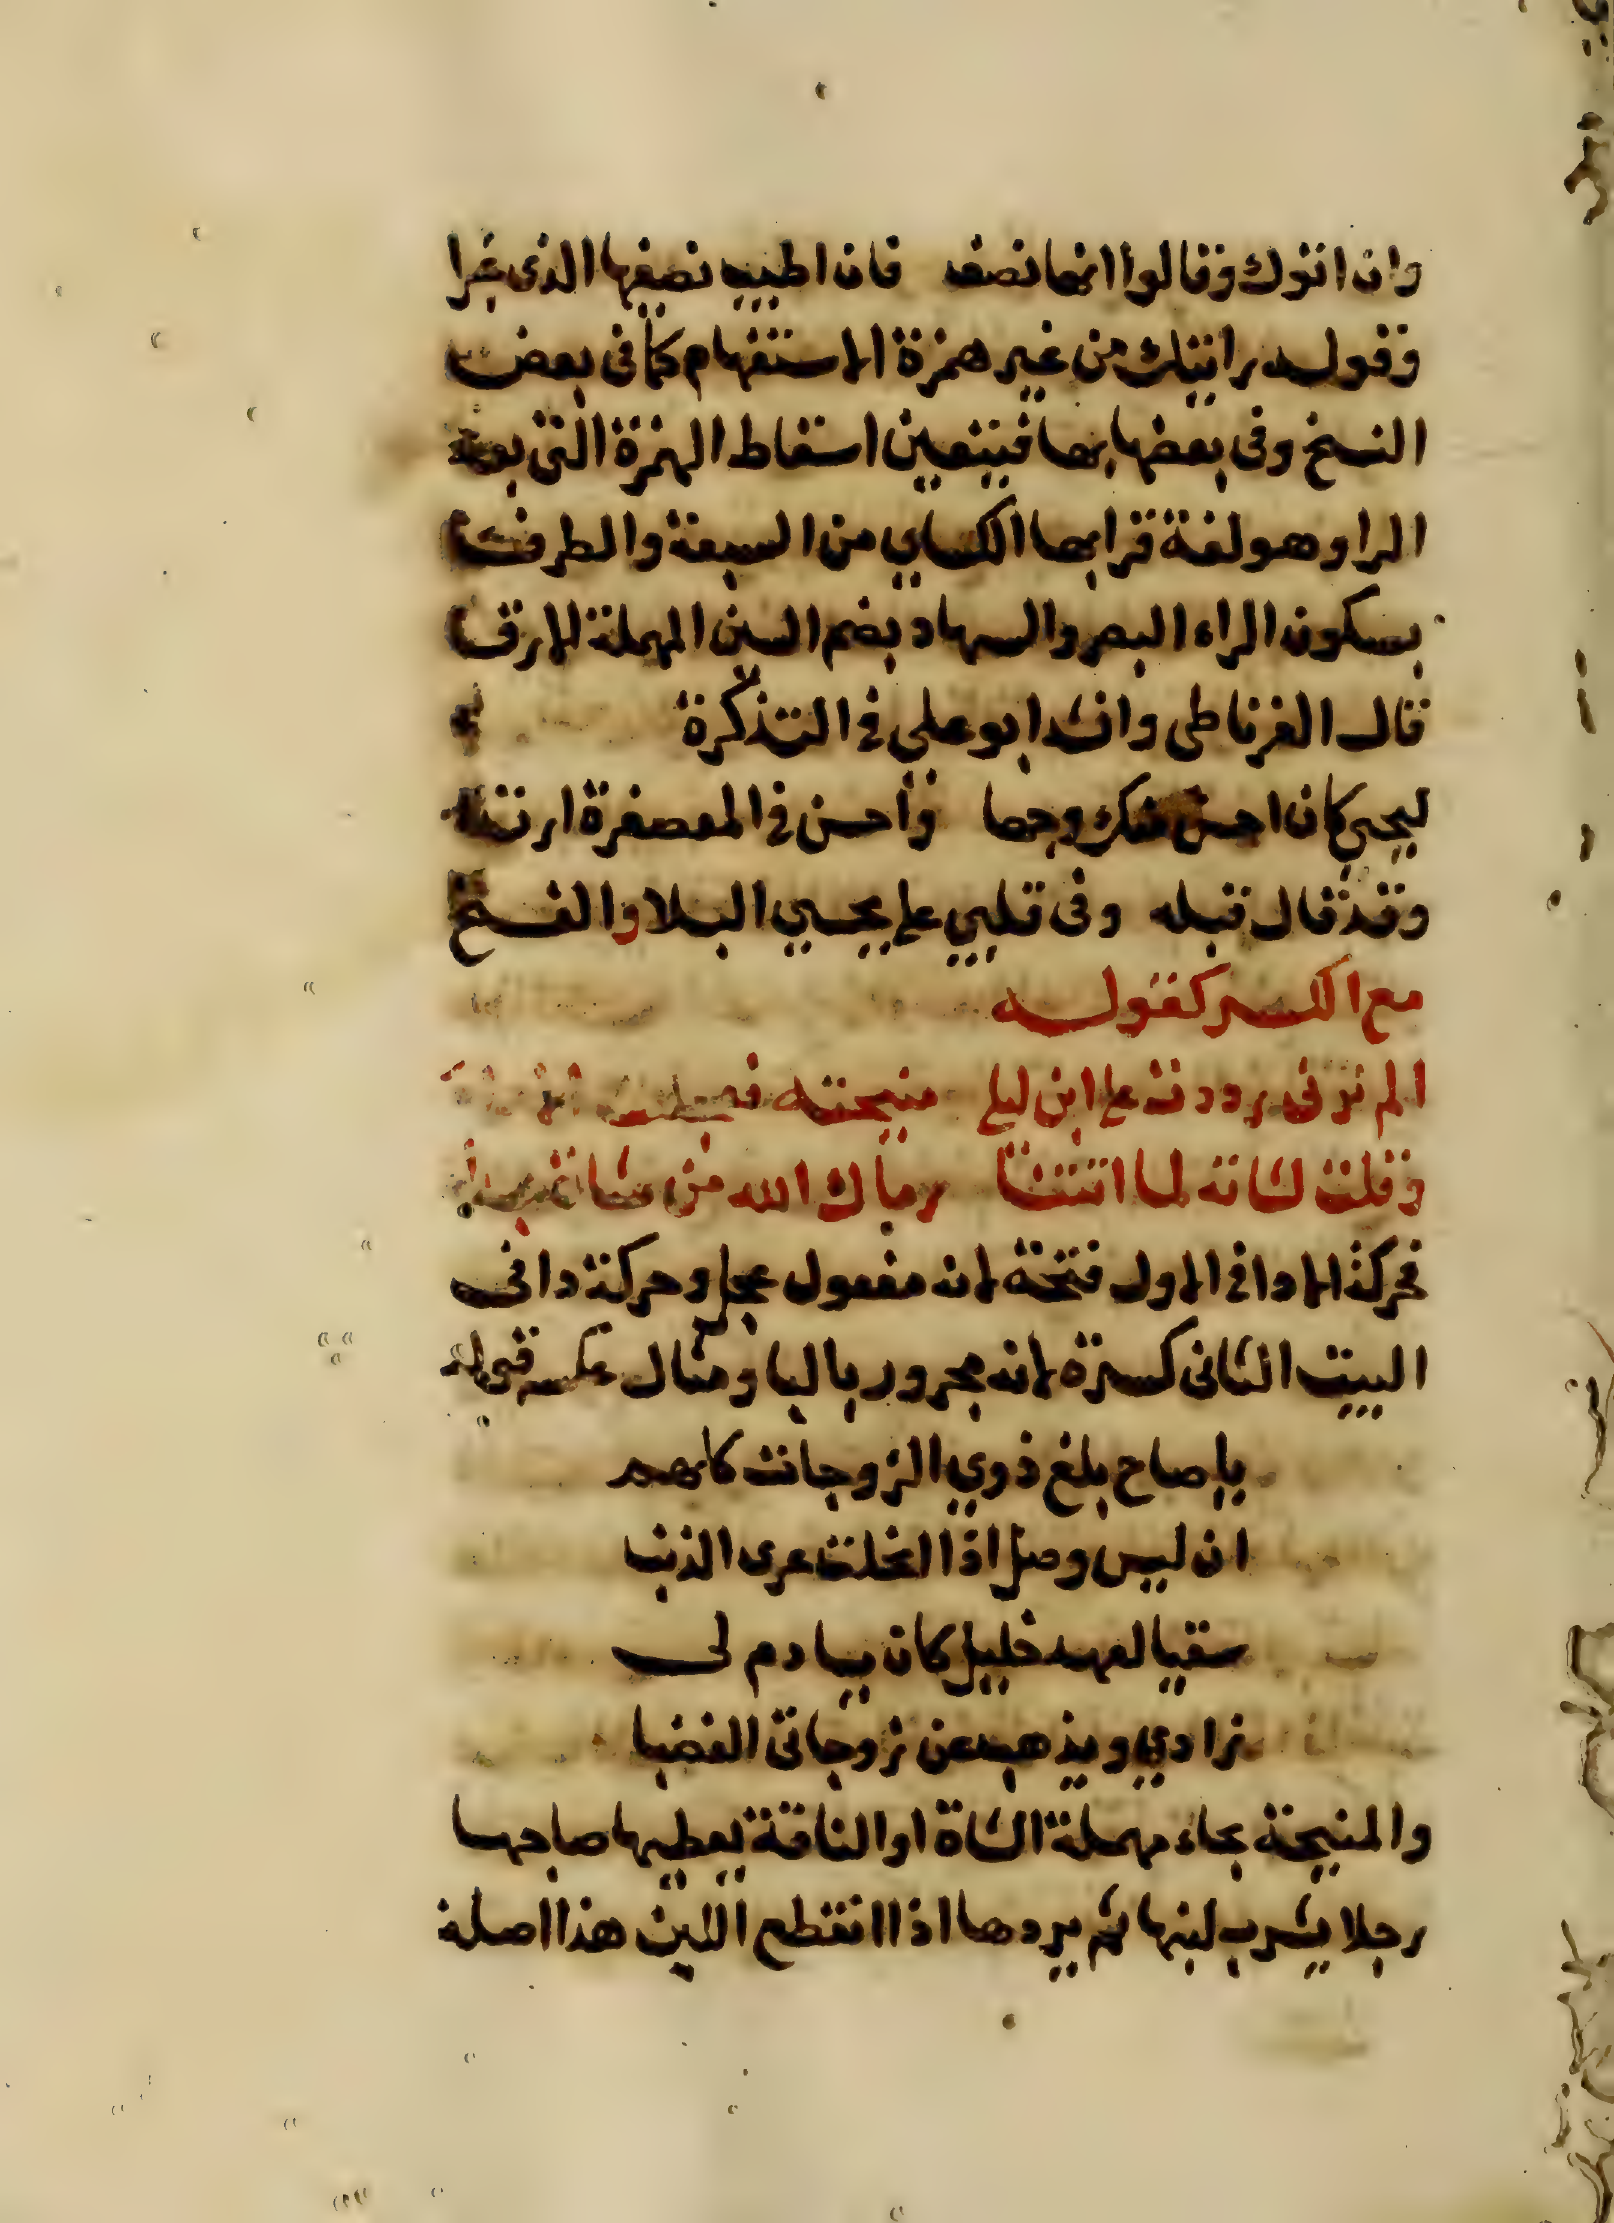 وان اتوك وقالوا انها نصف فان اطيب نصفيها الذى غبرا
وقوله رايتك من غير همزة الاستفهام كما فى بعض
النسخ وفى بعضها بها فيتعين اسقاط الهمزة التى بعد
الرا وهو لغة قرا بها الكساي من السبعة والطرف
بسكون الراء البصر والسهاد بضم السين المهملة الارق
قال الغرناطى وانشد ابو على في التذكرة
ليحيي كان احسن منك وجها واحسن في المعصفرة ارتدا
وقد قال قبله وفى قلبي على يحيي البلا والفتح
مع الكسر كقوله
الم ترنى رددت على ابن ليلى منيحته فعجلت
وقلت لشاته لما اتتنا رماك الله من شاة بداء
فحركة الاداء فى الاول فتحة لانه مفعول عجل وحركة دا فى
البيت الثانى كسرة لانه مجرور بالبا ومثال عكسه قوله
يا صاح بلغ ذوي الزوجات كلهم
ان ليس وصل اذا انحلت عرى الذنب
سقيا لعهد خليل كان يادم لى
زادي ويذهب عن زوجاتى الغضبا
والمنيحة بحاء مهملة الشاة او الناقة يعطيها صاحبها
رجلا يشرب لبنها ثم يردها اذا انقطع اللبن هذا اصله